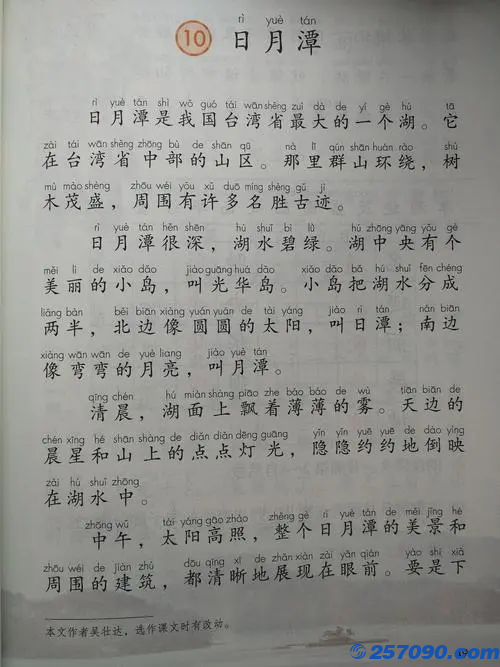 rì yuè tán
10 日月潭
rì yuè tán shì wǒ guó tái wān shěng zuì dà de yí gè hú tā
日月潭是我国台湾省最大的一个湖。它
zài tái wān shěng zhōng bù de shān qū nà lǐ qún shān huán rào shù
在台湾省中部的山区。那里群山环绕，树
mù mào shèng zhōu wéi yǒu xǔ duō míng shèng gǔ jì
木茂盛，周围有许多名胜古迹。
rì yuè tán hěn shēn hú shuǐ bì lǜ hú zhōng yāng yǒu gè
日月潭很深，湖水碧绿。湖中央有个
měi lì de xiǎo dǎo jiào guāng huá dǎo xiǎo dǎo bǎ hú shuǐ fēn chéng
美丽的小岛，叫光华岛。小岛把湖水分成
liǎng bàn běi biān xiàng yuán yuán de tài yáng jiào rì tán nán biān
两半，北边像圆圆的太阳，叫日潭；南边
xiàng wān wān de yuè liang jiào yuè tán
像弯弯的月亮，叫月潭。
qīng chén hú miàn shàng piāo zhe báo báo de wù tiān biān de
清晨，湖面上飘着薄薄的雾。天边的
chén xīng hé shān shàng de diǎn diǎn dēng guāng yǐn yǐn yuē yuē de dào yìng
晨星和山上的点点灯光，隐隐约约地倒映
zài hú shuǐ zhōng
在湖水中。
zhōng wǔ tài yáng gāo zhào zhěng gè rì yuè tán de měi jǐng hé
中午，太阳高照，整个日月潭的美景和
zhōu wéi de jiàn zhù dōu qīng xī de zhǎn xiàn zài yǎn qián yào shi xià
周围的建筑，都清晰地展现在眼前。要是下
本文作者吴壮达，选作课文时有改动。
257090.com